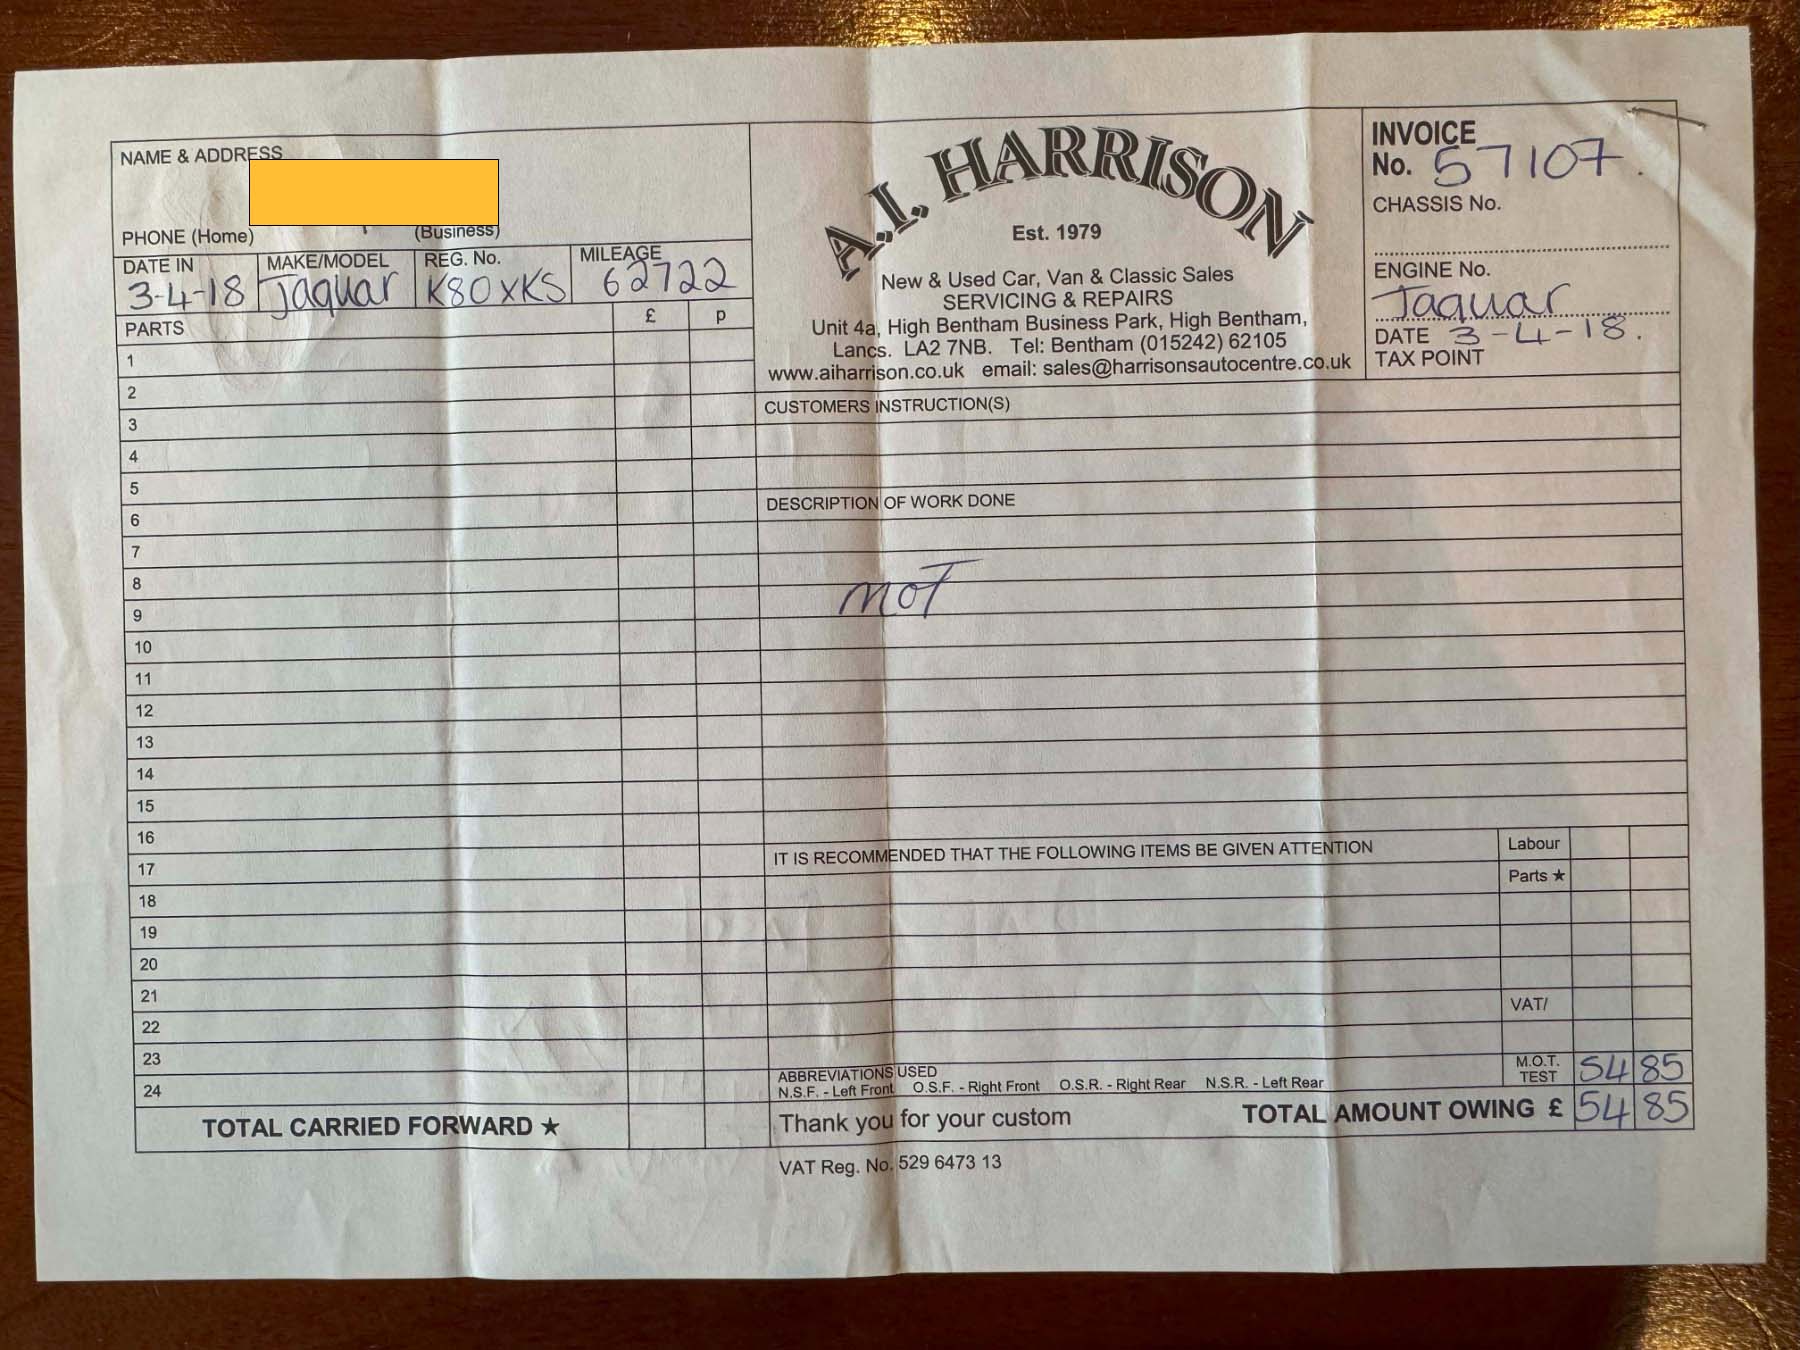 NAME & ADDRESS
PHONE (Home) (Business)
DATE IN MAKE/MODEL REG. No. MILEAGE
3-4-18 Jaguar K80XKS 62722
PARTS £ p
1
2
3
4
5
6
7
8
9
10
11
12
13
14
15
16
17
18
19
20
21
22
23
24
TOTAL CARRIED FORWARD ★
A.I. HARRISON
Est. 1979
New & Used Car, Van & Classic Sales
SERVICING & REPAIRS
Unit 4a, High Bentham Business Park, High Bentham,
Lancs. LA2 7NB. Tel: Bentham (015242) 62105
www.aiharrison.co.uk email: sales@harrisonsautocentre.co.uk
INVOICE
No. 57107.
CHASSIS No.
ENGINE No.
Jaguar
DATE 3-4-18.
TAX POINT
CUSTOMERS INSTRUCTION(S)
DESCRIPTION OF WORK DONE
MOT
IT IS RECOMMENDED THAT THE FOLLOWING ITEMS BE GIVEN ATTENTION
Labour
Parts ★
VAT/
M.O.T.
TEST 54 85
ABBREVIATIONS USED
N.S.F. - Left Front O.S.F. - Right Front O.S.R. - Right Rear N.S.R. - Left Rear
Thank you for your custom
TOTAL AMOUNT OWING £ 54 85
VAT Reg. No. 529 6473 13